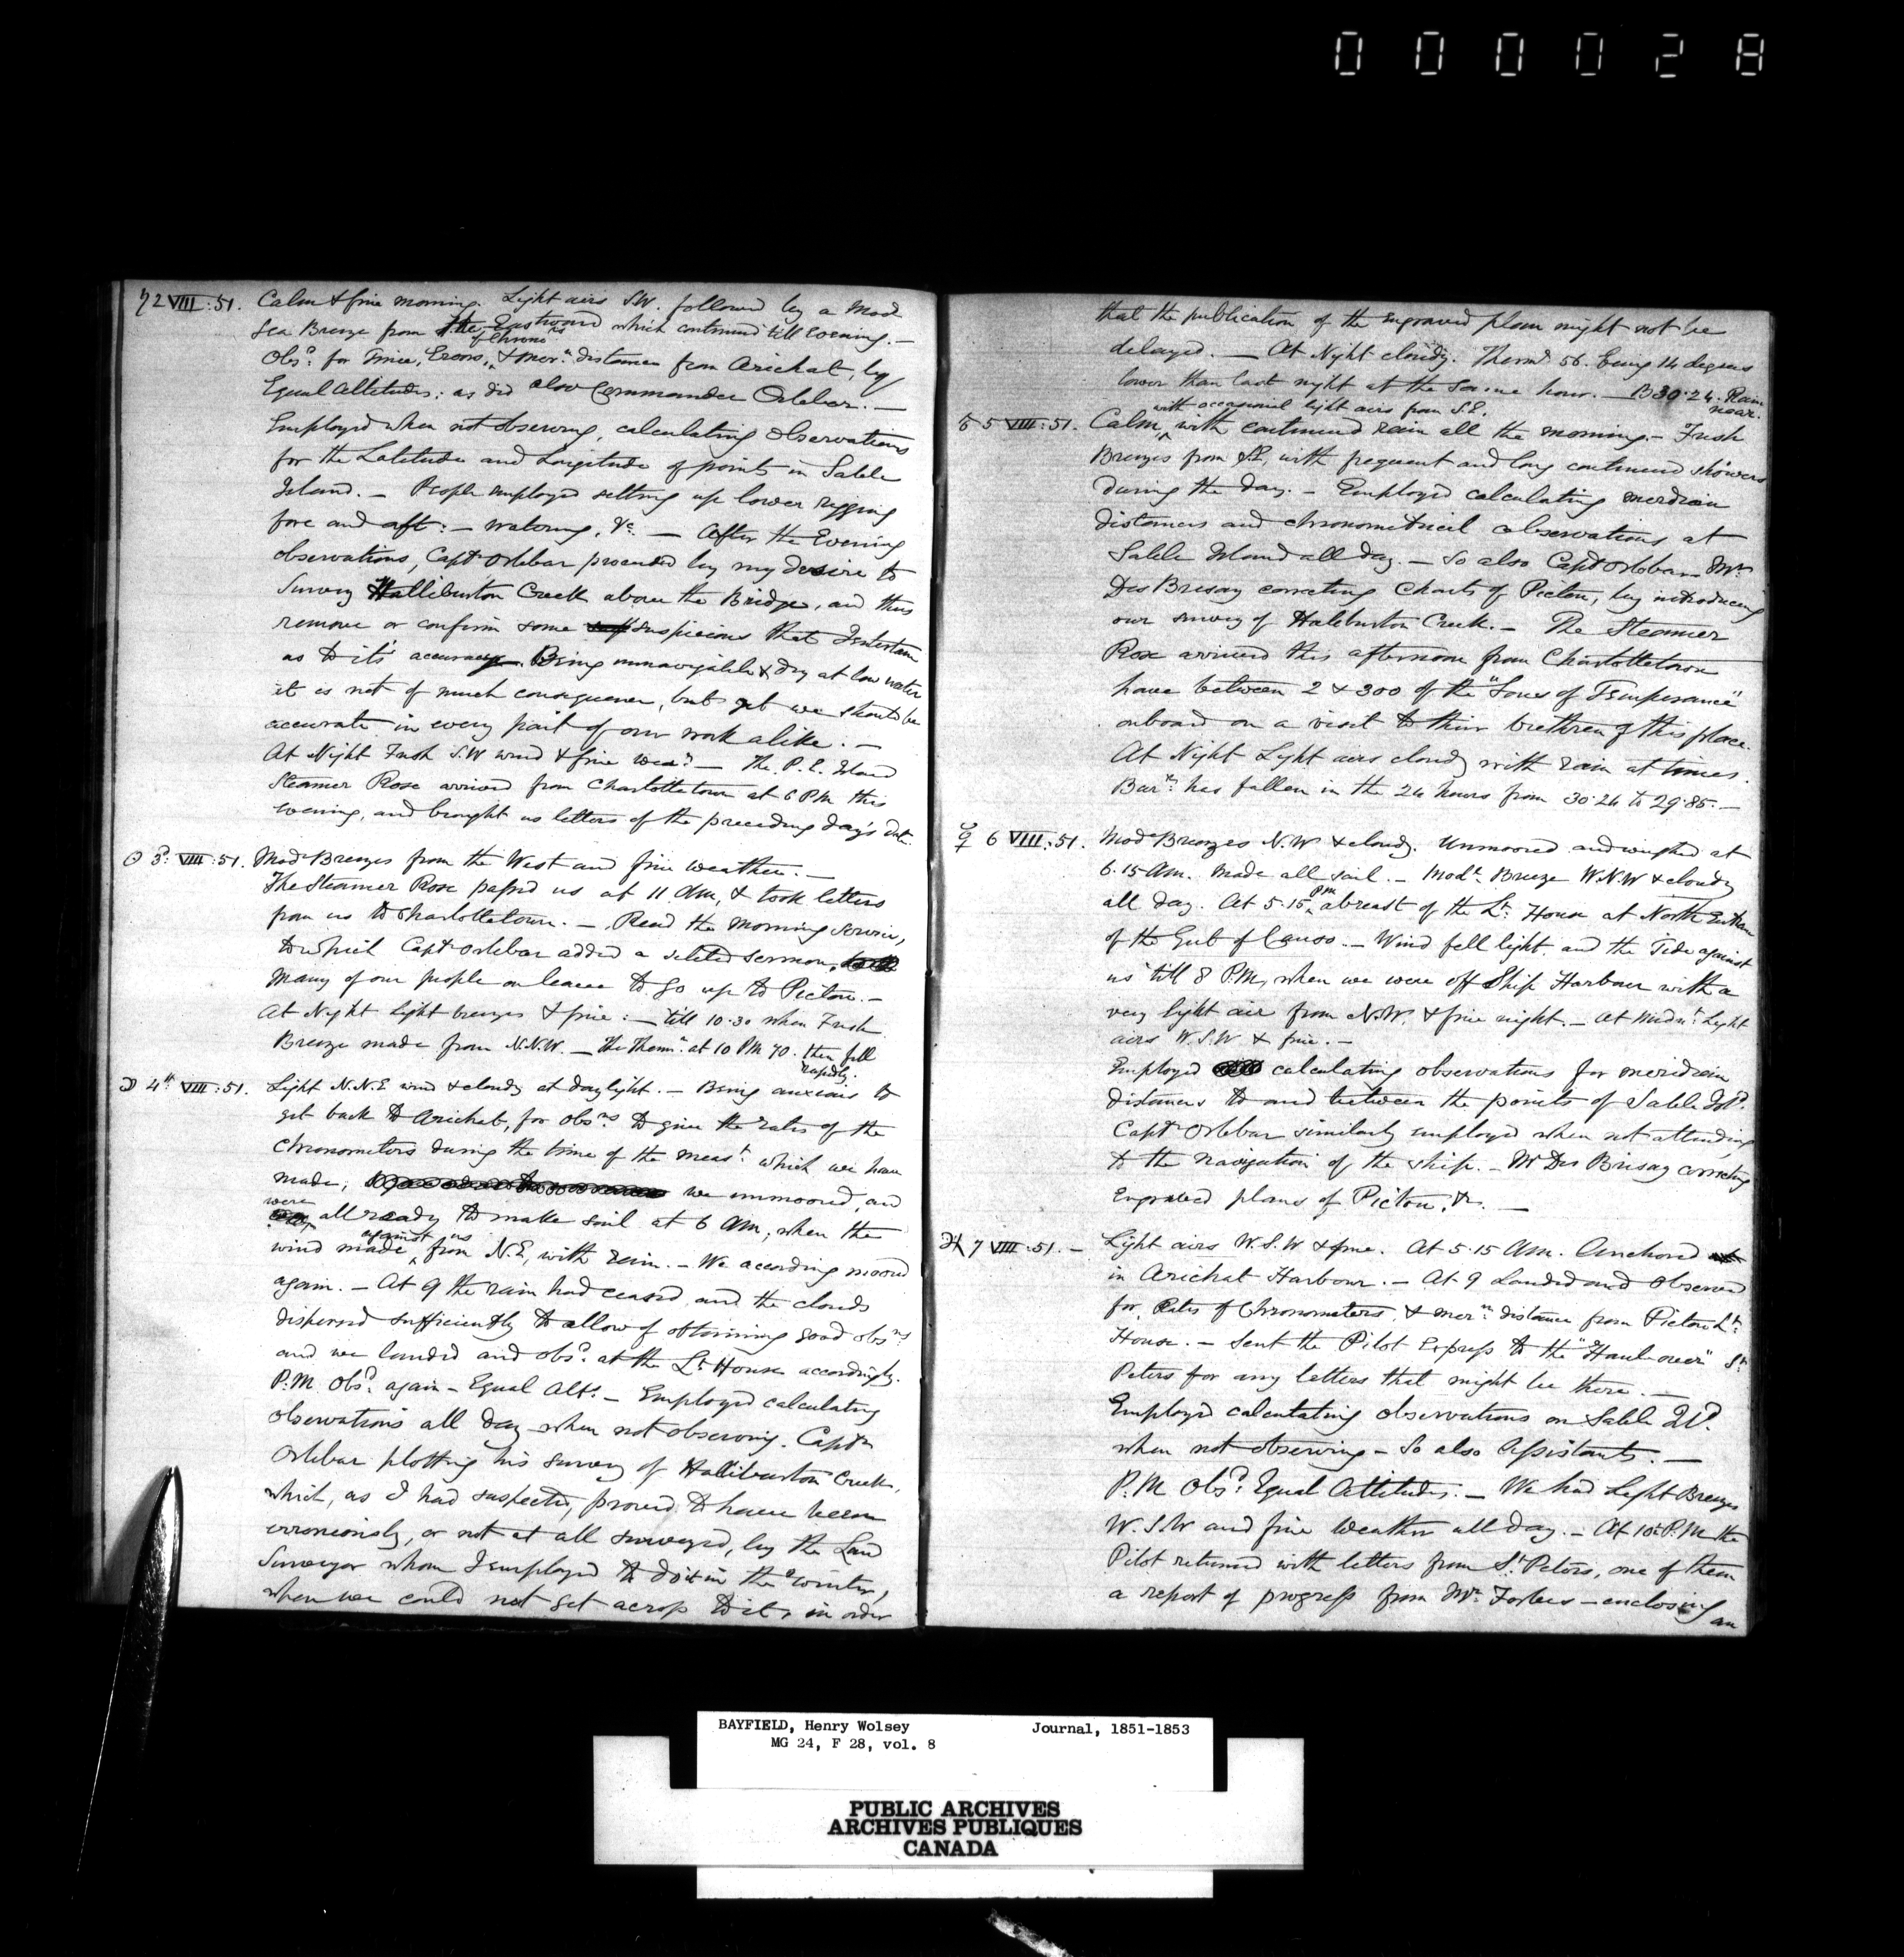 000028
♄ 2 VIII:51. Calm & fine morning. Light airs S.W. followed by a Mod
Sea Breeze from the Eastward which continued till evening. —
Obsd. for Time, Errors, of Chronors & mern. distance from Arichat, by
Equal Altitudes: as did also Commander Orlebar. —
Employed when not observing, calculating Observations
for the Latitude and Longitude of points in Sable
Island. — People employed setting up lower rigging
fore and aft: — watering, &c. — After the Evening
observations, Captn Orlebar proceeded by my desire to
Survey Halliburton Creek above the Bridge, and thus
remove or confirm some suspicions that I entertain
as to its' accuracy. Being unnavigable & dry at low water
it is not of much consequence, but yet we should be
accurate in every part of our work alike. —
At Night Fresh S.W wind & fine wear. — The P. E. Island
Steamer Rose arrived from Charlottetown at 6 PM this
evening, and brought us letters of the preceding day's date.
☉ 3d. VIII:51. Mode Breezes from the West and fine weather. —
The Steamer Rose passed us at 11 AM, & took letters
from us to Charlottetown. — Read the Morning Service,
to which Captn Orlebar added a selected sermon,
Many of our people on leave to go up to Pictou. —
At Night Light breezes & fine: — till 10.30 when Fresh
Breeze made from N.N.W. — The Thermr. at 10 PM 70. then fell
rapidly.
☽ 4th VIII:51. Light N.N.E wind & cloudy at daylight. — Being anxious to
get back to Arichat, for obsns to give the rates of the
Chronometers during the time of the meast. which we have
made, we unmoored, and
were all ready to make sail at 6 AM, when the
wind made against us from N.E, with rain. — We according moored
again. — At 9 the rain had ceased and the clouds
dispersed sufficiently to allow of obtaining good obsns
and we landed and obsd. at the Lt House accordingly.
P.M. Obsd. again — Equal Alts. — Employed calculating
observations all day when not observing. Captn
Orlebar plotting his survey of Halliburton Creek,
which, as I had suspected, proved to have been
erroneously, or not at all surveyed, by the Land
Surveyor whom I employed to do it in the winter,
when we could not get across to it, in order
that the publication of the engraved plan might not be
delayed. — At Night cloudy. Thermr 56. being 14 degrees
lower than last night at the same hour. — B 30.24. Rain
near.
♂ 5 VIII:51. Calm, with occasional light airs from S.E. with continued rain all the morning. — Fresh
Breezes from S.E, with frequent and long continued showers
during the day. — Employed calculating meridian
distances and chronometrical observations at
Sable Island all day. — So also Captn Orlebar — Mr.
Des Brisay correcting Charts of Pictou, by introducing
our survey of Haliburton Creek. — The Steamer
Rose arrived this afternoon from Charlottetown
have between 2 & 300 of the "Sons of Temperance"
onboard on a visit to their brethren of this place.
At Night Light airs cloudy with rain at times.
Barr. has fallen in the 24 hours from 30.24 to 29.85. —
☿ 6 VIII:51. Mode Breezes N.W & cloudy. Unmoored and weighed at
6.15 AM. Made all sail. — Modt. Breeze W.N.W & cloudy
all day. At 5.15 PM abreast of the Lt. House at North Entran
of the Gut of Canso. — Wind fell light, and the Tide against
us till 8 P.M, when we were off Ship Harbour with a
very light air from N.W. & fine night. — At Midnt. Light
airs W.S.W & fine. —
Employed calculating observations for meridian
distances to and between the points of Sable Isld.
Captn Orlebar similarly employed when not attending
to the navigation of the ship. — Mr Des Brisay correcting
Engraved plans of Pictou, &c. —
♃ 7 VIII:51. — Light airs W.S.W & fine. At 5.15 AM. Anchored
in Arichat Harbour. — At 9 Landed and Observed
for Rates of Chronometers, & mern distance from Pictou Lt.
House. — Sent the Pilot Express to the "Haulover" St.
Peters for any letters that might be there. —
Employed calculating observations on Sable Id.
when not observing — So also Assistants. —
P.M Obsd. Equal Altitudes. — We had Light Breezes
W.S.W and fine weather all day. — At 10h P.M the
Pilot returned with letters from St. Peters, one of them
a report of progress from Mr. Forbes — enclosing an
BAYFIELD, Henry Wolsey Journal, 1851-1853
MG 24, F 28, vol. 8
PUBLIC ARCHIVES
ARCHIVES PUBLIQUES
CANADA